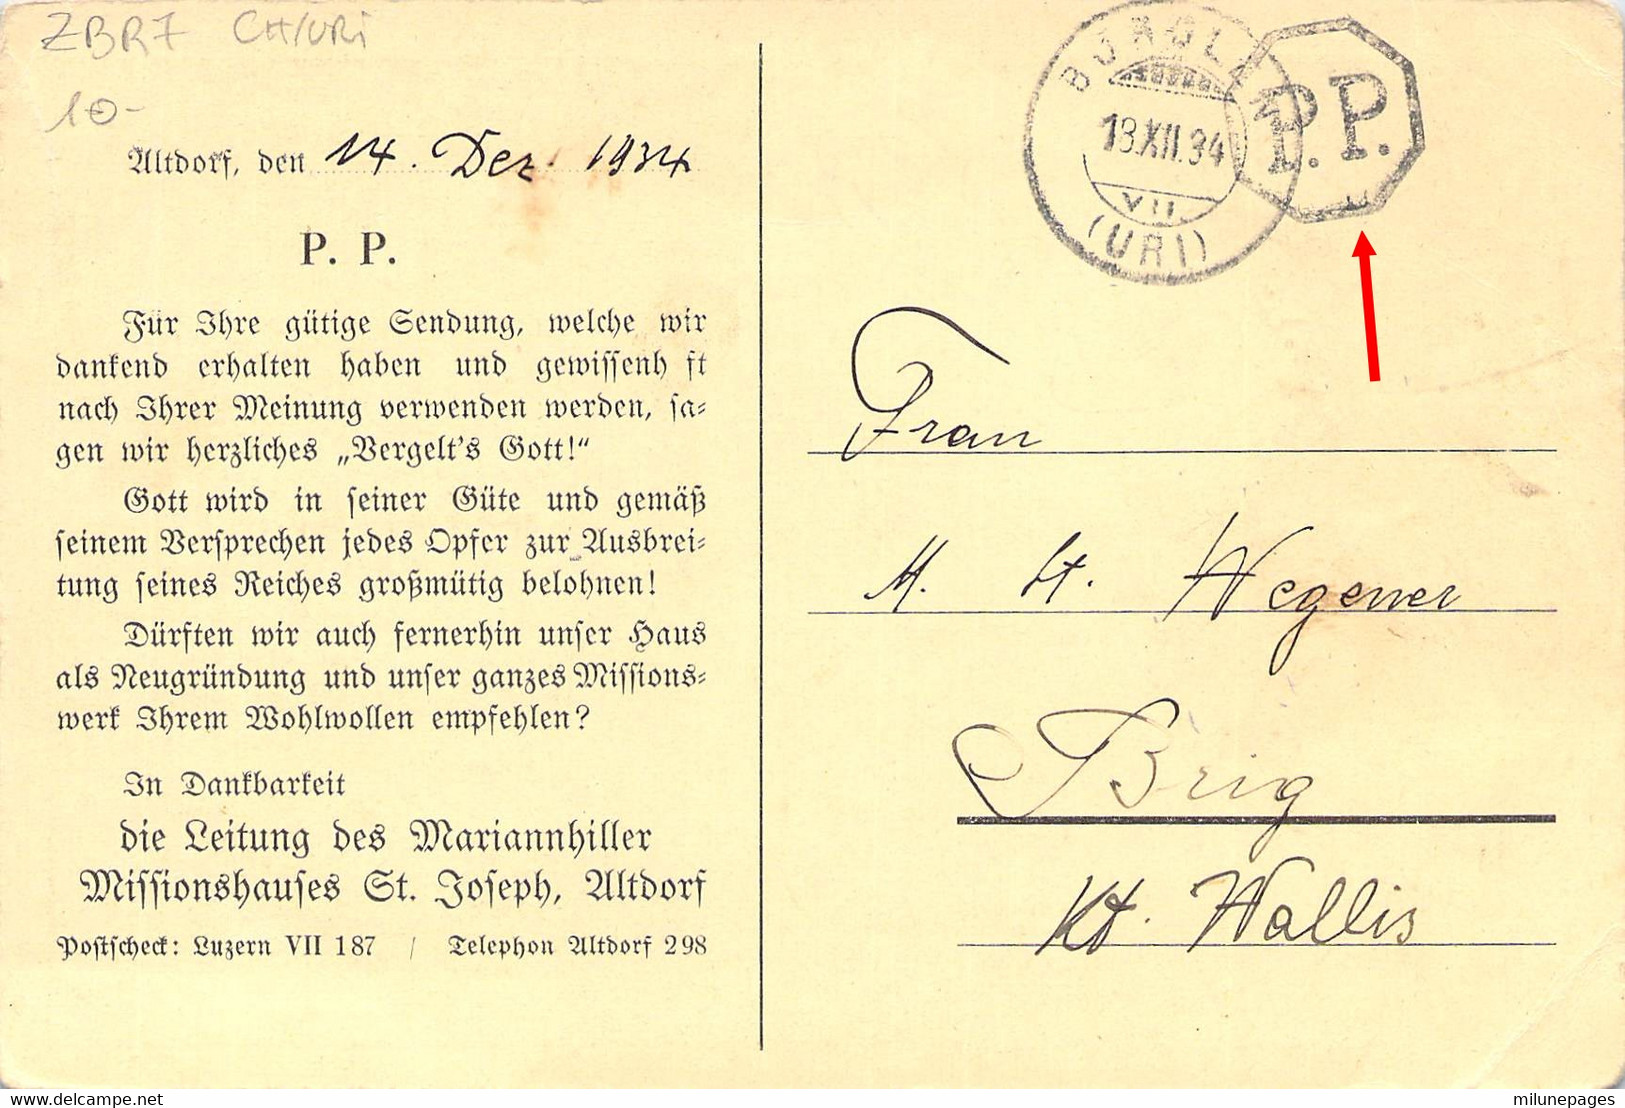 ZBR7 CH/URi
10-
Altdorf, den 14. Dez. 1934
P. P.
Für Ihre gütige Sendung, welche wir
dankend erhalten haben und gewissenh ft
nach Ihrer Meinung verwenden werden, sa-
gen wir herzliches „Vergelt's Gott!“
Gott wird in seiner Güte und gemäß
seinem Versprechen jedes Opfer zur Ausbrei-
tung seines Reiches großmütig belohnen!
Dürften wir auch fernerhin unser Haus
als Neugründung und unser ganzes Missions-
werk Ihrem Wohlwollen empfehlen?
In Dankbarkeit
die Leitung des Mariannhiller
Missionshauses St. Joseph, Altdorf
Postscheck: Luzern VII 187 / Telephon Altdorf 298
BÜRGLEN
18.XII.34
VII
(URI)
P.P.
Frau
M. Wegener
Brig
Kt. Wallis
milunepages